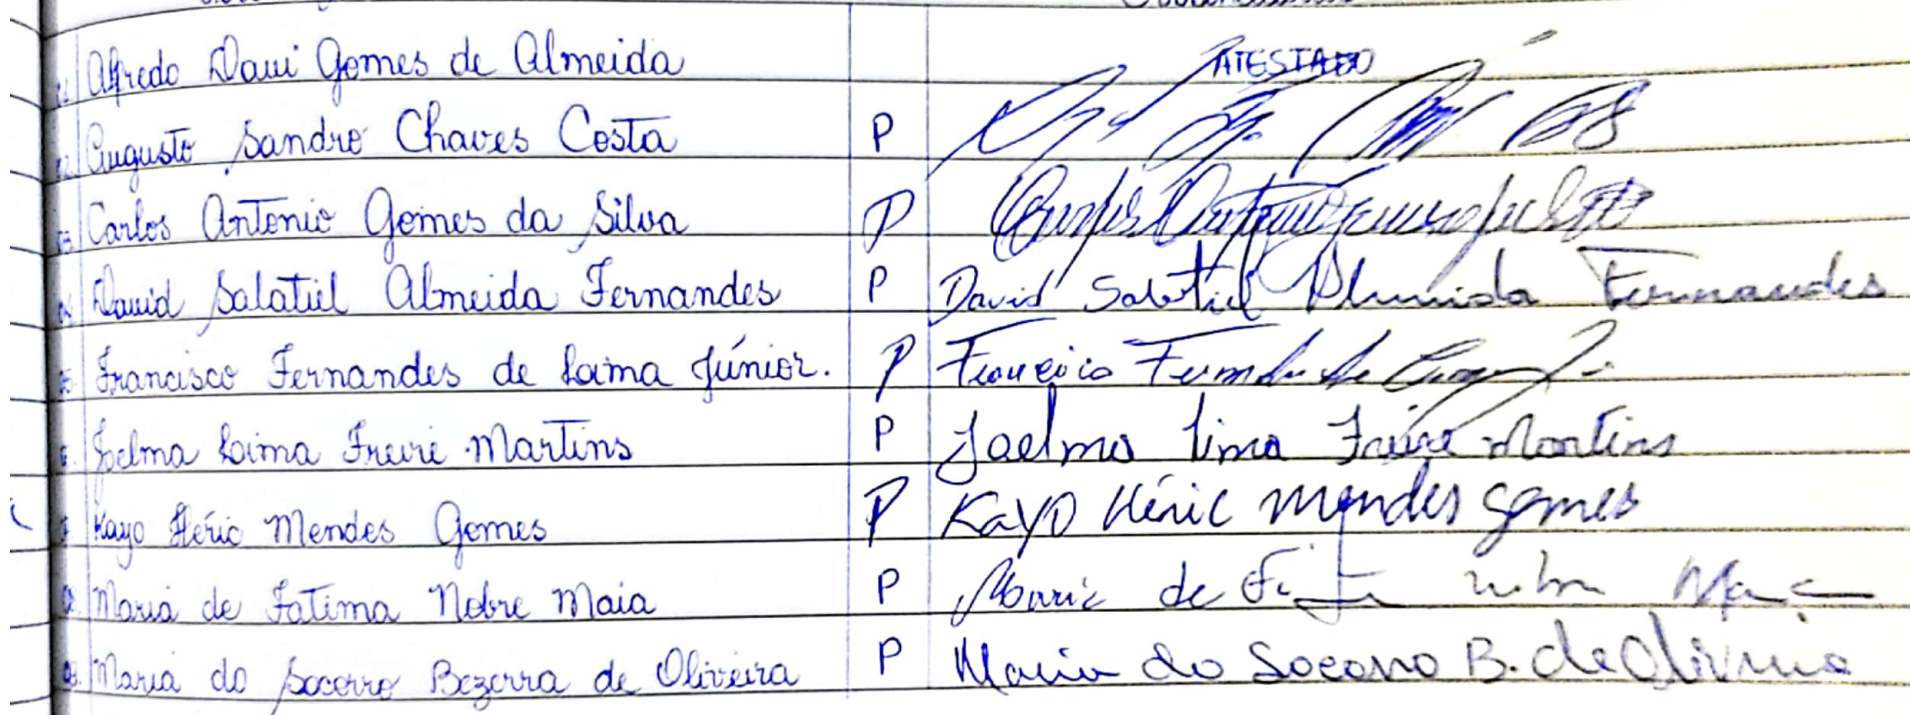 01. Alfredo Davi Gomes de Almeida ATESTADO
02. Augusto Sandro Chaves Costa P
03. Carlos Antonio Gomes da Silva P
04. David Salatiel Almeida Fernandes P David Salatiel Almeida Fernandes
05. Francisco Fernandes de Lima Júnior. P Francisco Fernandes de
6. Joelma Lima Freire Martins P Joelma Lima Freire Martins
7. Kayo Héric Mendes Gomes P Kayo Héric Mendes Gomes
08. Maria de Fatima Nobre Maia P Maria de
09. Maria do Socorro Bezerra de Oliveira P Maria do Socorro B. de Oliveira